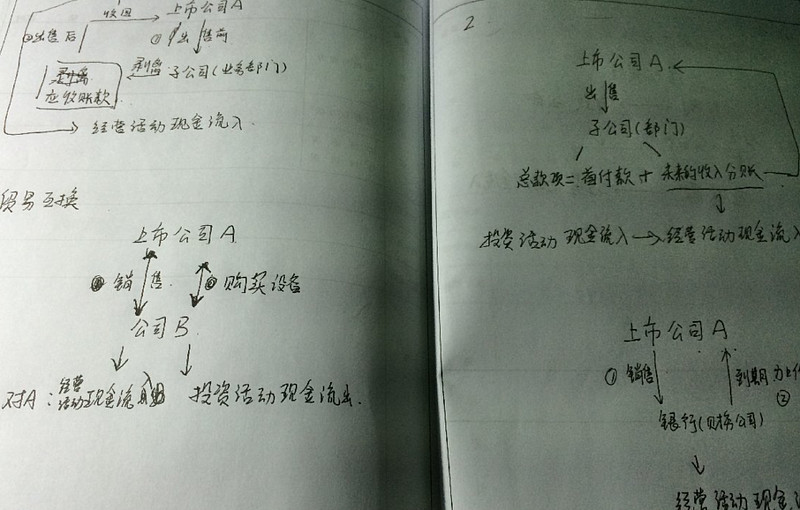 收回 上市公司A
②出售后 ①出售前
剥离 子公司(业务部门)
应收账款
经营活动现金流入
贸易互换
上市公司A
①销售 ②购买设备
公司B
对A: 经营活动现金流入 投资活动现金流出.
2
上市公司A
出售
子公司(部门)
总款项=首付款+未来的收入分账
投资活动现金流入→经营活动现金流入
上市公司A
①销售 到期
②
银行(财务公司)
经营活动现金